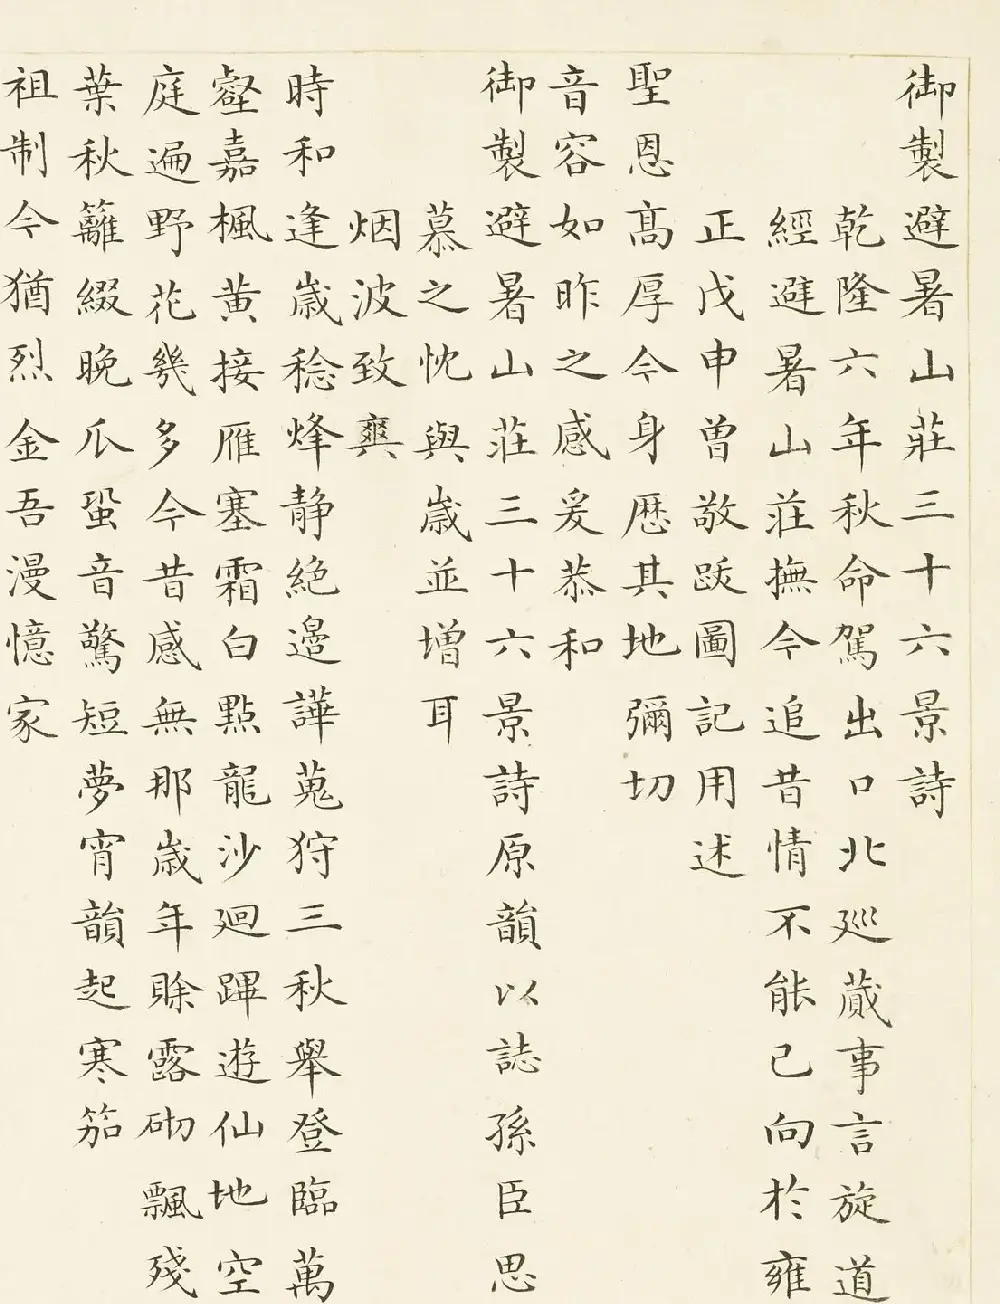 御製避暑山莊三十六景詩
乾隆六年秋命駕出口北巡蕆事言旋道
經避暑山莊撫今追昔情不能已向於雍
正戊申曾敬跋圖記用述
聖恩高厚今身歷其地彌切
音容如昨之感爰恭和
御製避暑山莊三十六景詩原韻以誌孫臣思
慕之忱與歲並增耳
烟波致爽
時和逢歲稔烽静絶邊譁蒐狩三秋舉登臨萬
壑嘉楓黄接雁塞霜白點龍沙廻蹕遊仙地空
庭遍野花幾多今昔感無那歲年賒露砌飄殘
葉秋籬綴晚瓜蛩音驚短夢宵韻起寒笳
祖制今猶烈金吾漫憶家